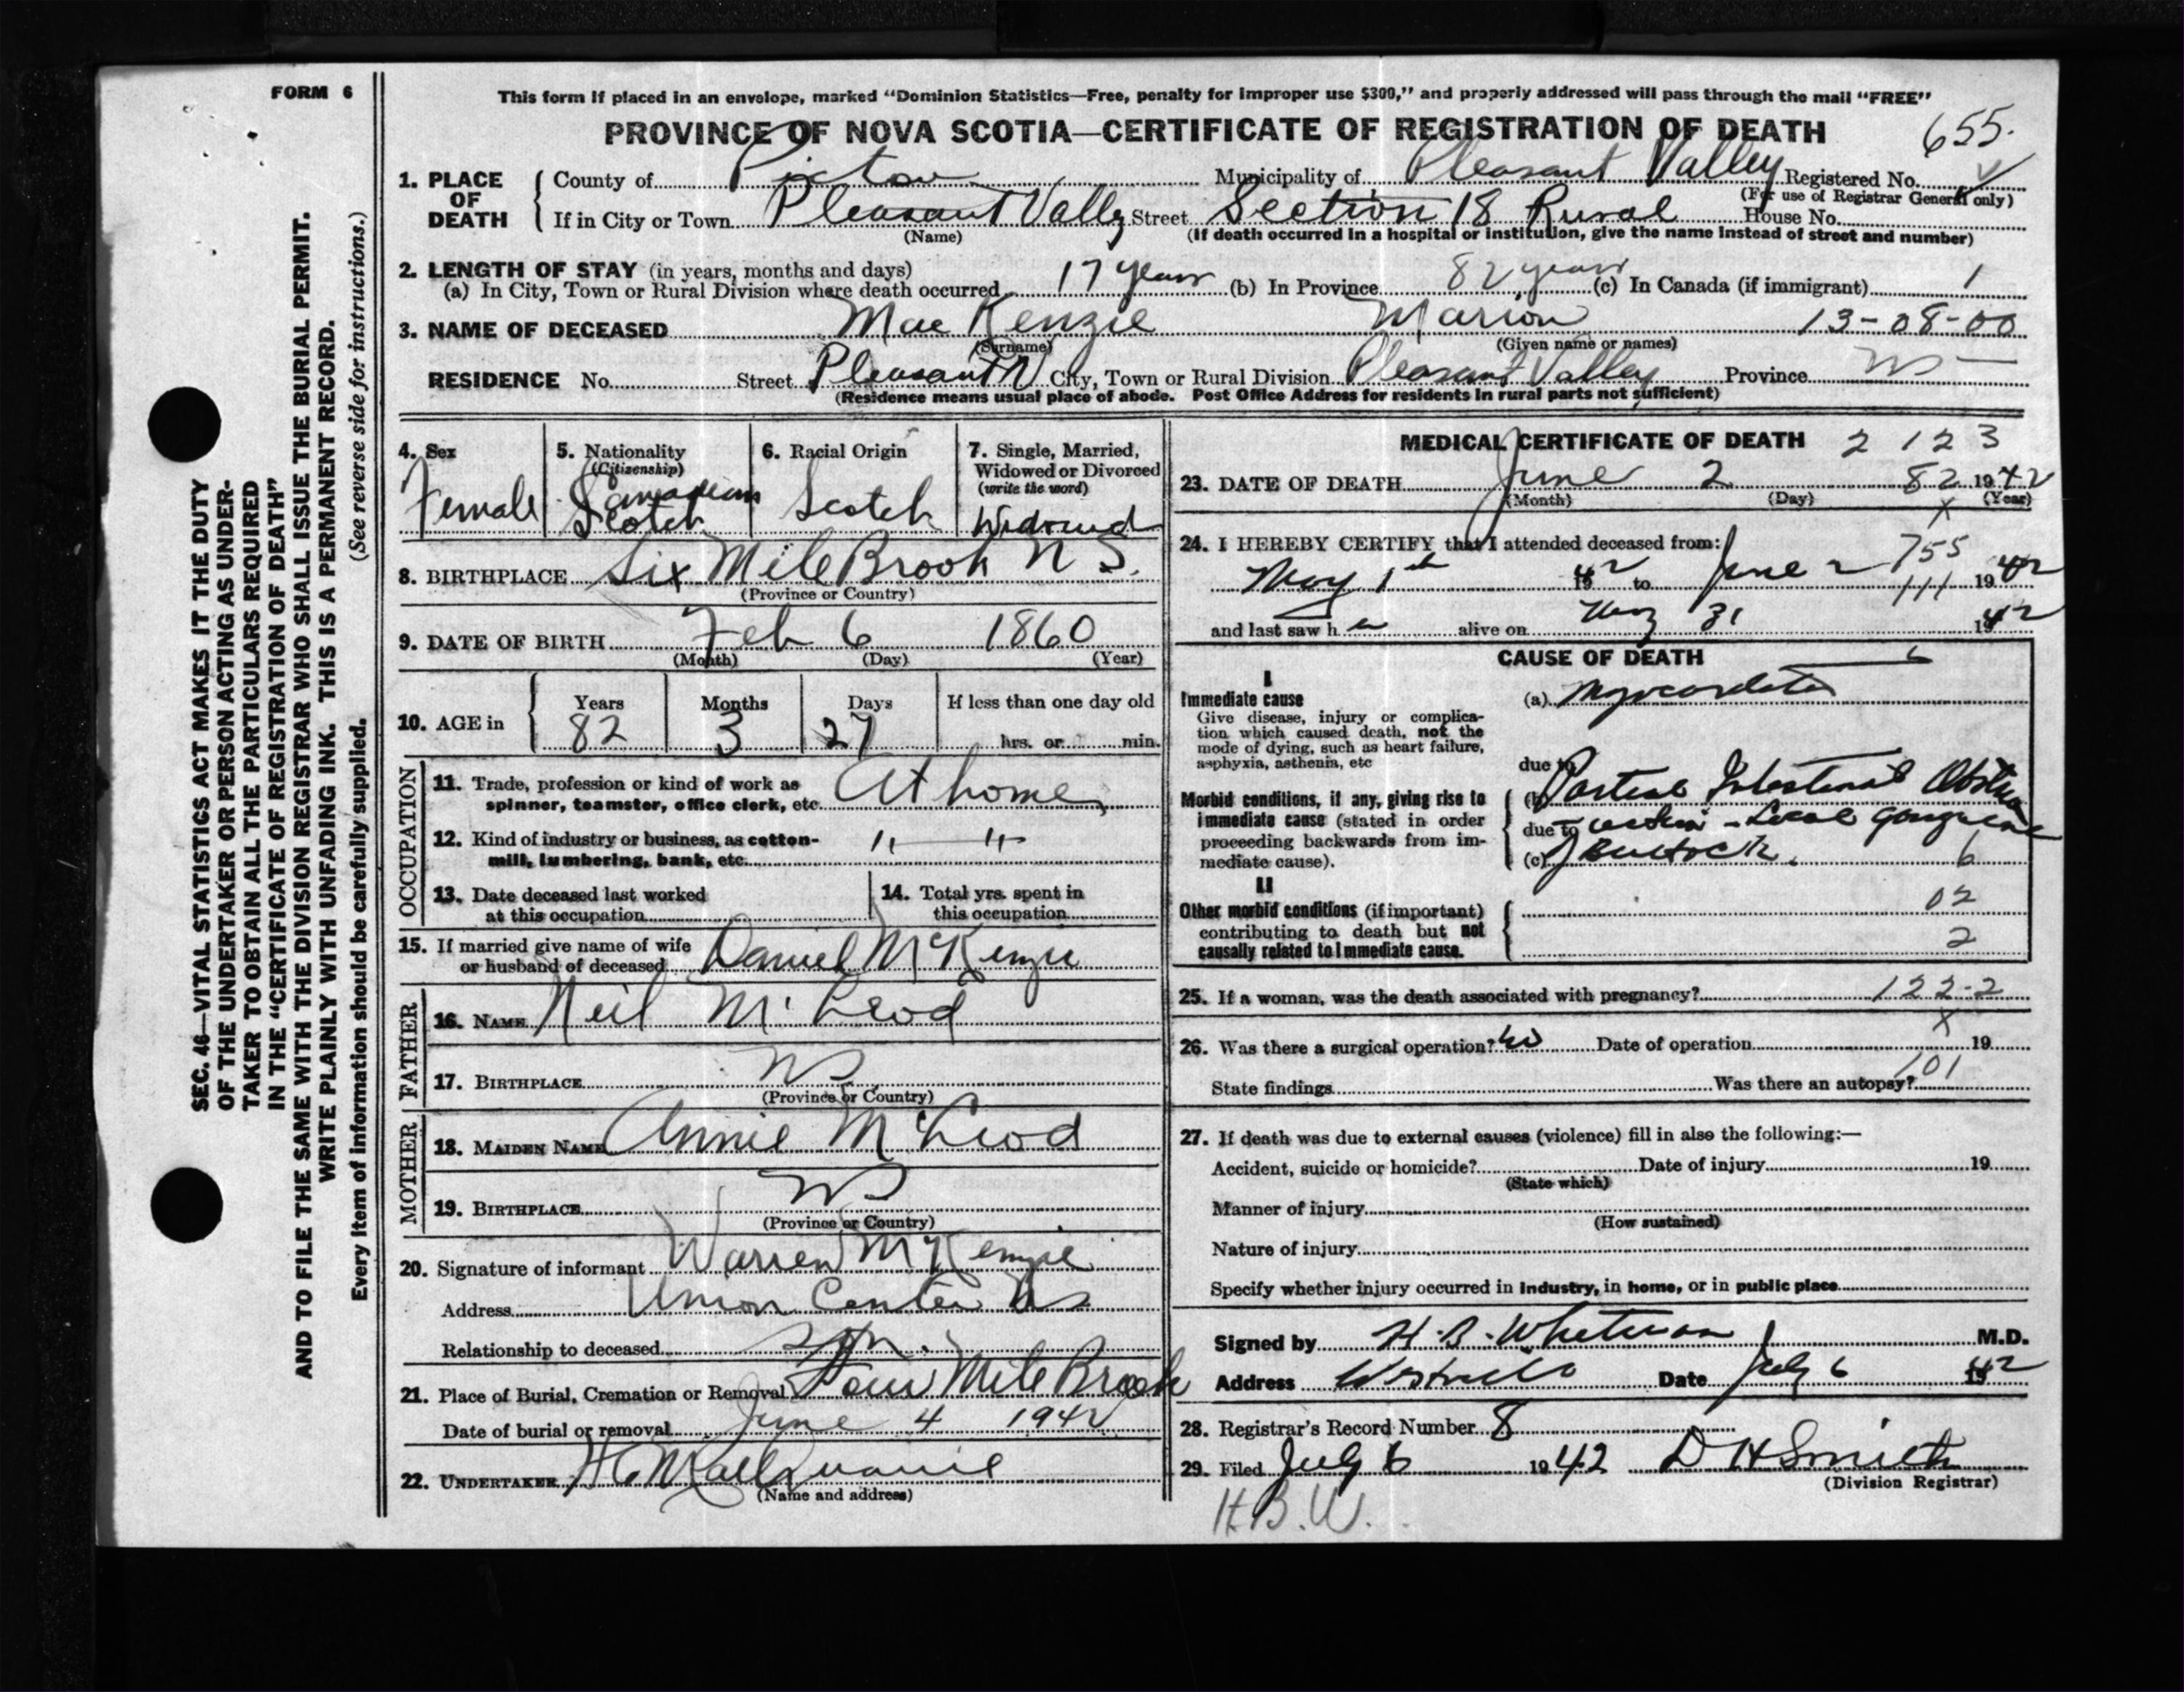 FORM 6
This form if placed in an envelope, marked "Dominion Statistics—Free, penalty for improper use $300," and properly addressed will pass through the mail "FREE"
PROVINCE OF NOVA SCOTIA—CERTIFICATE OF REGISTRATION OF DEATH 655.
1. PLACE OF DEATH County of Pictou Municipality of Pleasant Valley Registered No.
(For use of Registrar General only)
If in City or Town Pleasant Vally Street Section 18 Rural House No.
(Name) (If death occurred in a hospital or institution, give the name instead of street and number)
2. LENGTH OF STAY (in years, months and days)
(a) In City, Town or Rural Division where death occurred 17 years (b) In Province 82 years (c) In Canada (if immigrant) 1
3. NAME OF DECEASED Mac Kenzie Marion 13-08-00
(Surname) (Given name or names)
RESIDENCE No. Street Pleasant V City, Town or Rural Division Pleasant Valley Province NS
(Residence means usual place of abode. Post Office Address for residents in rural parts not sufficient)
4. Sex Female
5. Nationality (Citizenship) Canadian Scotch
6. Racial Origin Scotch
7. Single, Married, Widowed or Divorced (write the word) Widowed
8. BIRTHPLACE Six Mile Brook N S.
(Province or Country)
9. DATE OF BIRTH Feb 6 1860
(Month) (Day) (Year)
10. AGE in Years 82 Months 3 Days 27 If less than one day old hrs. or min.
OCCUPATION
11. Trade, profession or kind of work as spinner, teamster, office clerk, etc. At home
12. Kind of industry or business, as cotton-mill, lumbering, bank, etc. " "
13. Date deceased last worked at this occupation
14. Total yrs. spent in this occupation
15. If married give name of wife or husband of deceased Daniel McKenzie
FATHER
16. NAME Neil McLeod
17. BIRTHPLACE NS
(Province or Country)
MOTHER
18. MAIDEN NAME Annie McLeod
19. BIRTHPLACE NS
(Province or Country)
20. Signature of informant Warren McKenzie
Address Union Center NS
Relationship to deceased son.
21. Place of Burial, Cremation or Removal Four Mile Brook
Date of burial or removal June 4 1942
22. UNDERTAKER
(Name and address)
MEDICAL CERTIFICATE OF DEATH 2 123
23. DATE OF DEATH June 2 82 1942
(Month) (Day) (Year)
x
24. I HEREBY CERTIFY that I attended deceased from: 755
May 1st 1942 to June 2 111 1942
and last saw her alive on May 31 1942
CAUSE OF DEATH 6
I
Immediate cause (a) Myocarditis
Give disease, injury or complication which caused death, not the mode of dying, such as heart failure, asphyxia, asthenia, etc
due to
Morbid conditions, if any, giving rise to immediate cause (stated in order proceeding backwards from immediate cause).
(b) Partial Intestinal Obstru
due to ction - Local Gangrene
(c) of Buttock. 6
II
Other morbid conditions (if important) contributing to death but not causally related to immediate cause.
02
2
25. If a woman, was the death associated with pregnancy? 122-2
x
26. Was there a surgical operation? No Date of operation 19
State findings Was there an autopsy? 101
27. If death was due to external causes (violence) fill in also the following:—
Accident, suicide or homicide? Date of injury 19
(State which)
Manner of injury
(How sustained)
Nature of injury
Specify whether injury occurred in industry, in home, or in public place
Signed by H. B. Whitman M.D.
Address Westville Date July 6 1942
28. Registrar's Record Number 8
29. Filed July 6 1942 D H Smith
(Division Registrar)
H.B.W.
SEC. 46—VITAL STATISTICS ACT MAKES IT THE DUTY
OF THE UNDERTAKER OR PERSON ACTING AS UNDER-
TAKER TO OBTAIN ALL THE PARTICULARS REQUIRED
IN THE "CERTIFICATE OF REGISTRATION OF DEATH"
AND TO FILE THE SAME WITH THE DIVISION REGISTRAR WHO SHALL ISSUE THE BURIAL PERMIT.
WRITE PLAINLY WITH UNFADING INK. THIS IS A PERMANENT RECORD.
Every item of information should be carefully supplied. (See reverse side for instructions.)